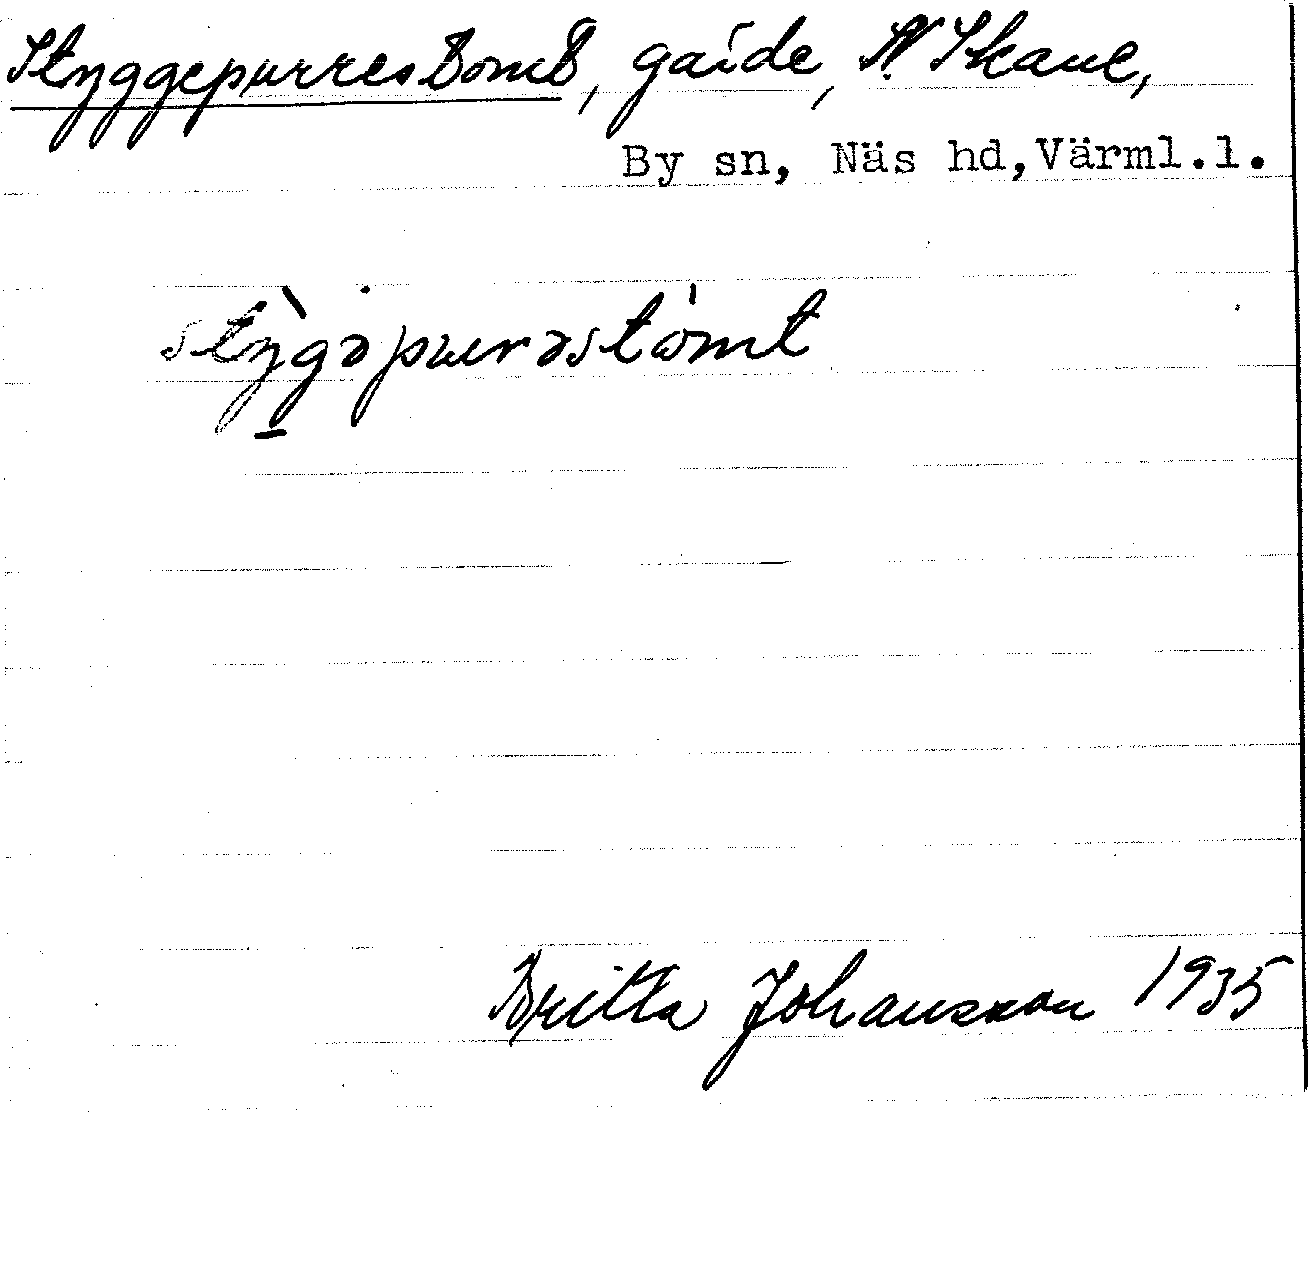 Styggepurrestomt, gärde, N. Skane,
By sn, Näs hd, Värml.l.
stỳgəpurəstòmt
Britta Johansson 1935